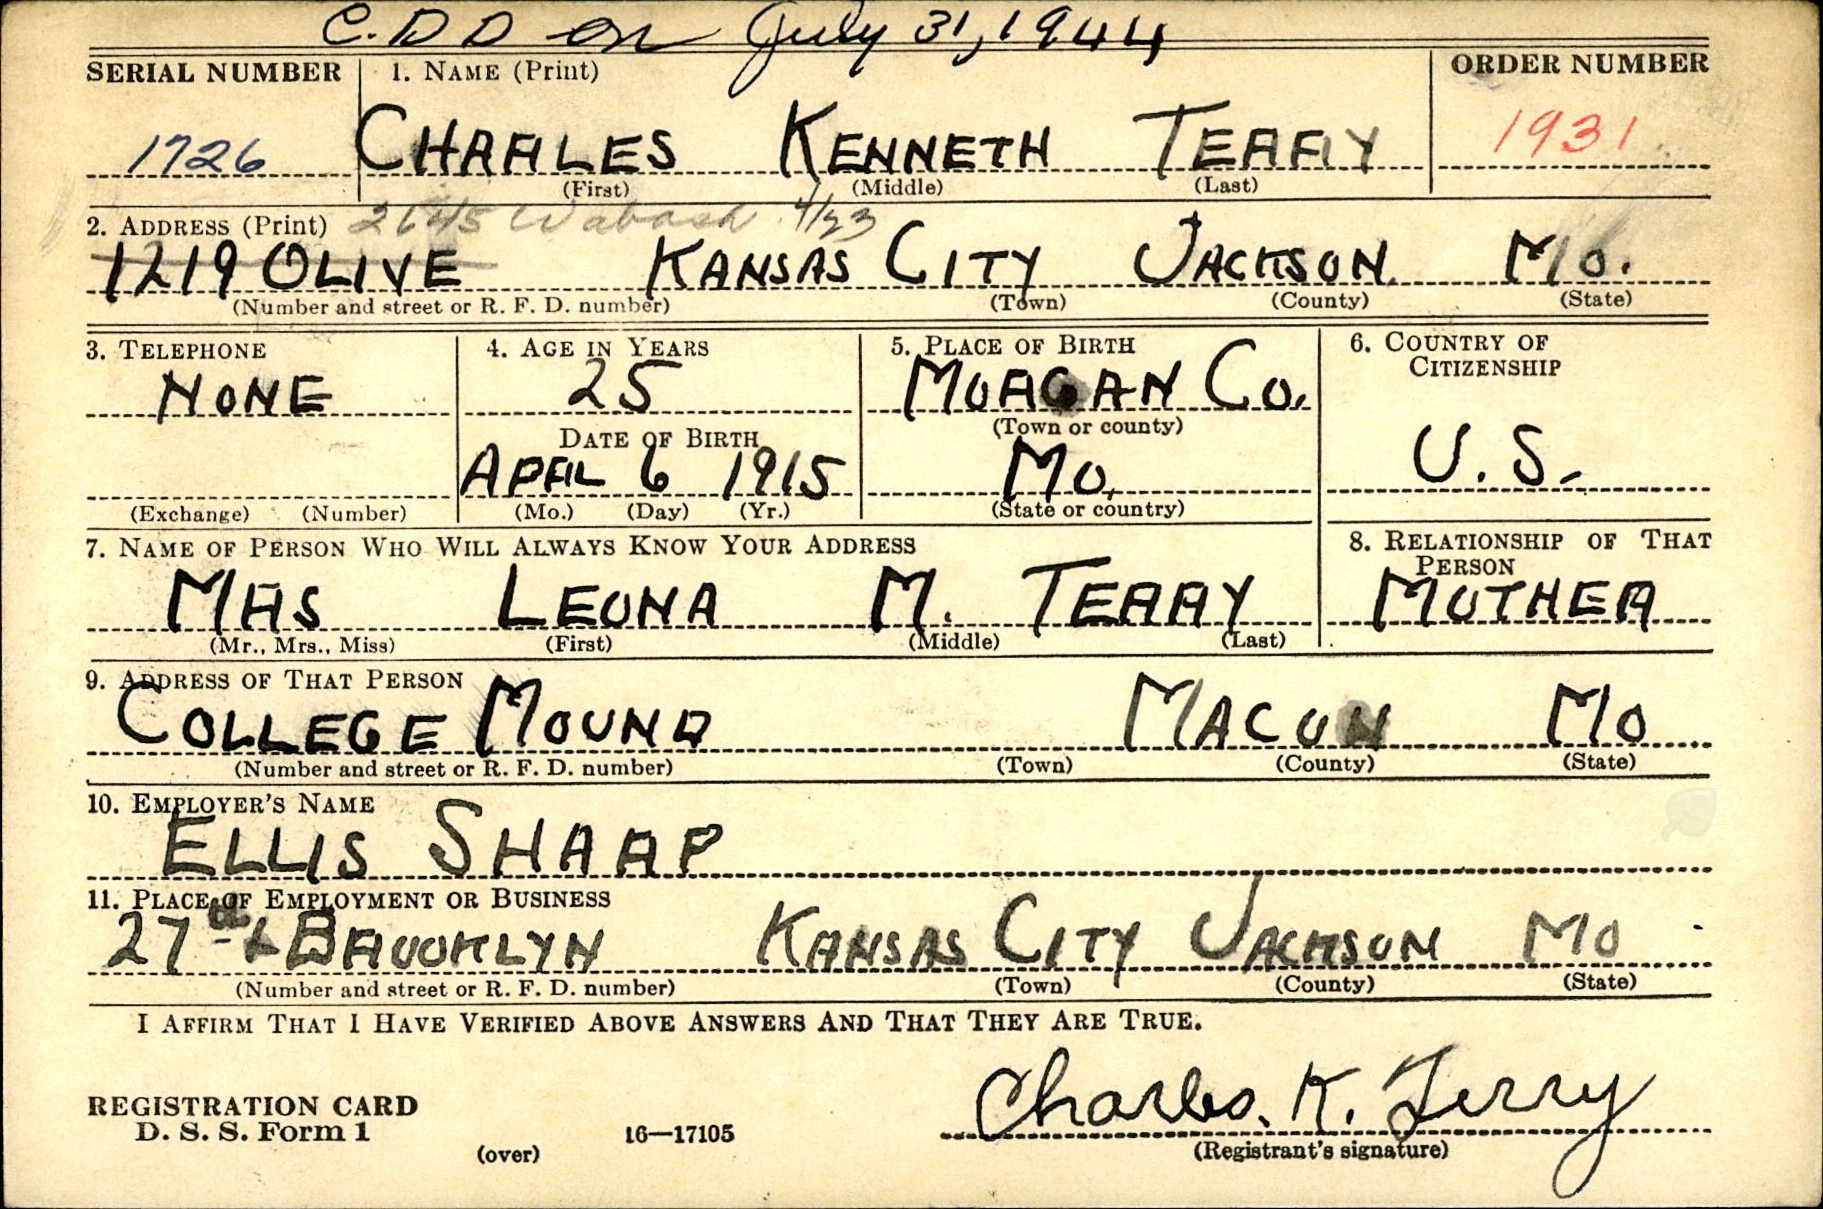 C.D D on July 31, 1944
SERIAL NUMBER 1. NAME (Print) ORDER NUMBER
1726 CHARLES KENNETH TERRY 1931
(First) (Middle) (Last)
2. ADDRESS (Print) 2645 Wabash 4/23
1219 OLIVE KANSAS CITY JACKSON MO.
(Number and street or R. F. D. number) (Town) (County) (State)
3. TELEPHONE 4. AGE IN YEARS 5. PLACE OF BIRTH 6. COUNTRY OF CITIZENSHIP
NONE 25 MORGAN CO.
DATE OF BIRTH (Town or county)
APRIL 6 1915 MO. U. S.
(Exchange) (Number) (Mo.) (Day) (Yr.) (State or country)
7. NAME OF PERSON WHO WILL ALWAYS KNOW YOUR ADDRESS 8. RELATIONSHIP OF THAT PERSON
MRS LEONA M. TERRY MOTHER
(Mr., Mrs., Miss) (First) (Middle) (Last)
9. ADDRESS OF THAT PERSON
COLLEGE MOUND MACON MO
(Number and street or R. F. D. number) (Town) (County) (State)
10. EMPLOYER'S NAME
ELLIS SHARP
11. PLACE OF EMPLOYMENT OR BUSINESS
27 & BROOKLYN KANSAS CITY JACKSON MO
(Number and street or R. F. D. number) (Town) (County) (State)
I AFFIRM THAT I HAVE VERIFIED ABOVE ANSWERS AND THAT THEY ARE TRUE.
Charles. K. Terry
REGISTRATION CARD
D. S. S. Form 1
(over) 16—17105 (Registrant's signature)